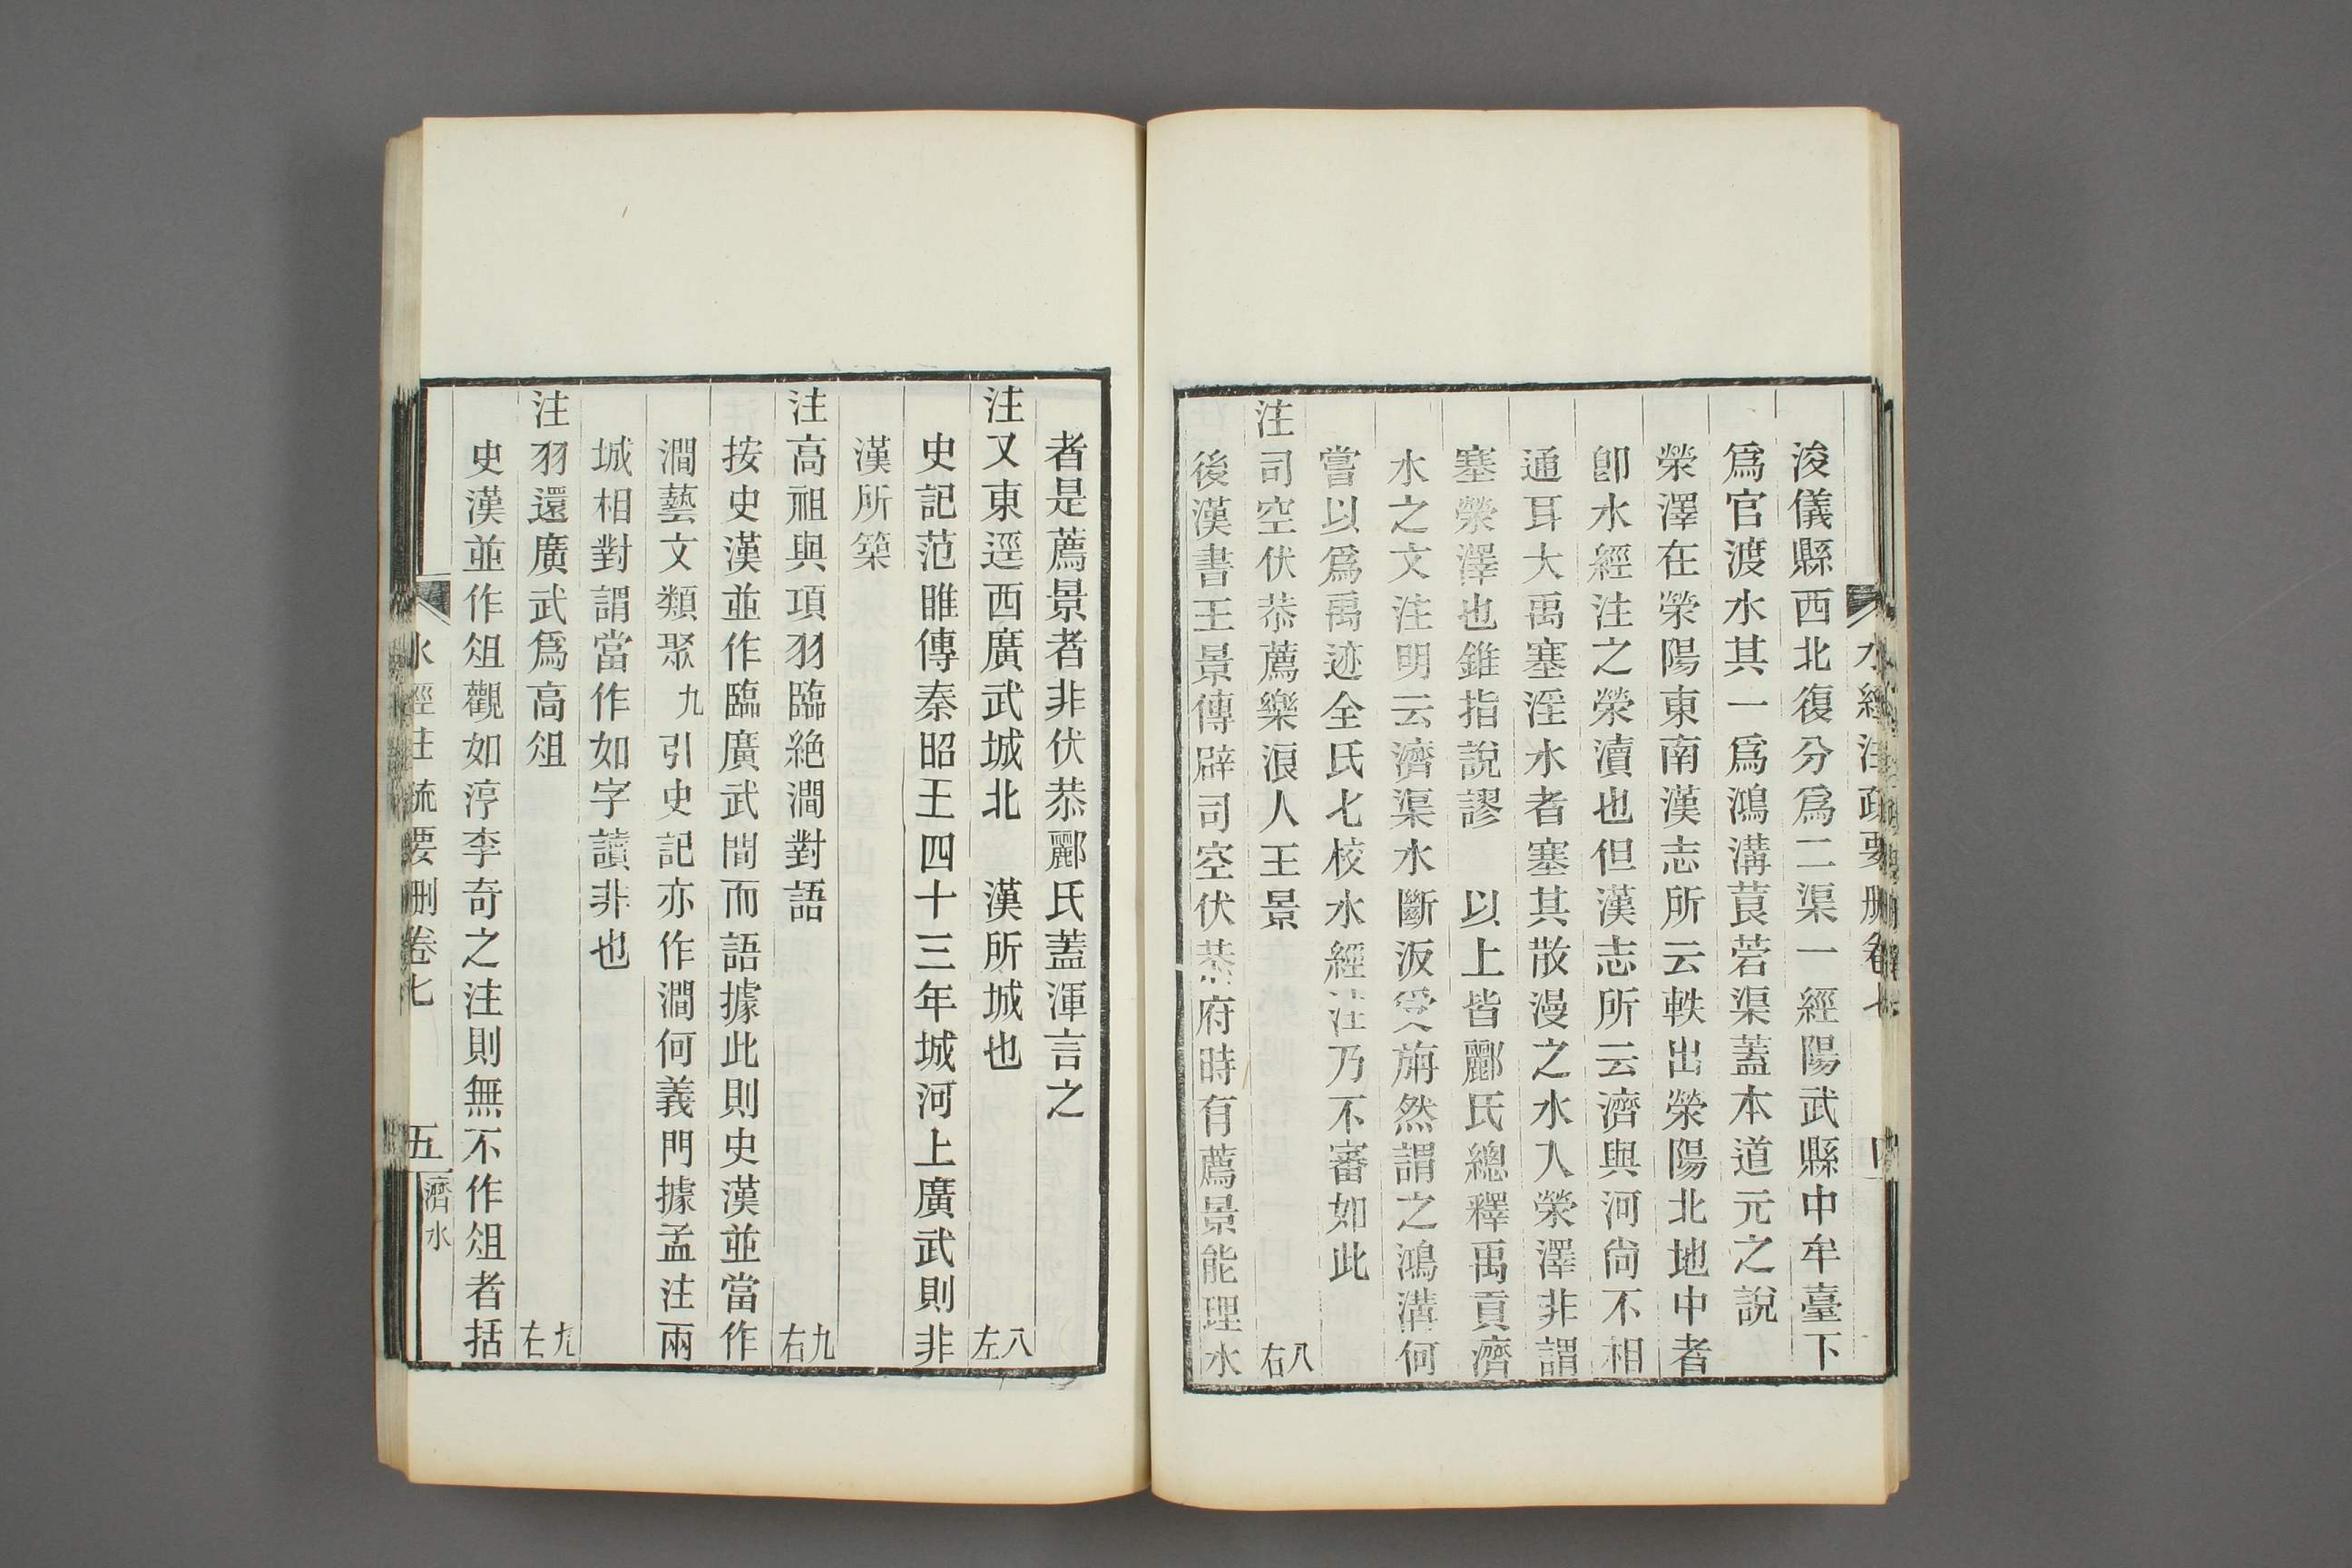 水經注疏要刪卷七
四
浚儀縣西北復分爲二渠一經陽武縣中牟臺下
爲官渡水其一爲鴻溝莨菪渠蓋本道元之說
滎澤在滎陽東南漢志所云軼出滎陽北地中者
卽水經注之滎瀆也但漢志所云濟與河尙不相
通耳大禹塞淫水者塞其散漫之水入滎澤非謂
塞滎澤也錐指說謬　以上皆酈氏總釋禹貢濟
水之文注明云濟渠水斷汳受旃然謂之鴻溝何
嘗以爲禹迹全氏七校水經注乃不審如此
注司空伏恭薦樂浪人王景　八右
後漢書王景傳辟司空伏恭府時有薦景能理水
者是薦景者非伏恭酈氏蓋渾言之
注又東逕西廣武城北　漢所城也　八左
史記范睢傳秦昭王四十三年城河上廣武則非
漢所築
注高祖與項羽臨絕澗對語　九右
按史漢並作臨廣武間而語據此則史漢並當作
澗藝文類聚九引史記亦作澗何義門據孟注兩
城相對謂當作如字讀非也
注羽還廣武爲高俎　九右
史漢並作俎觀如淳李奇之注則無不作俎者括
水經注疏要刪卷七
五
濟水